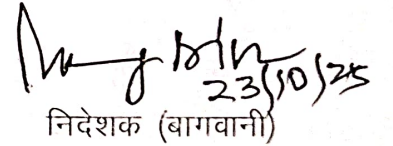 23/10/25
निदेशक (बागवानी)